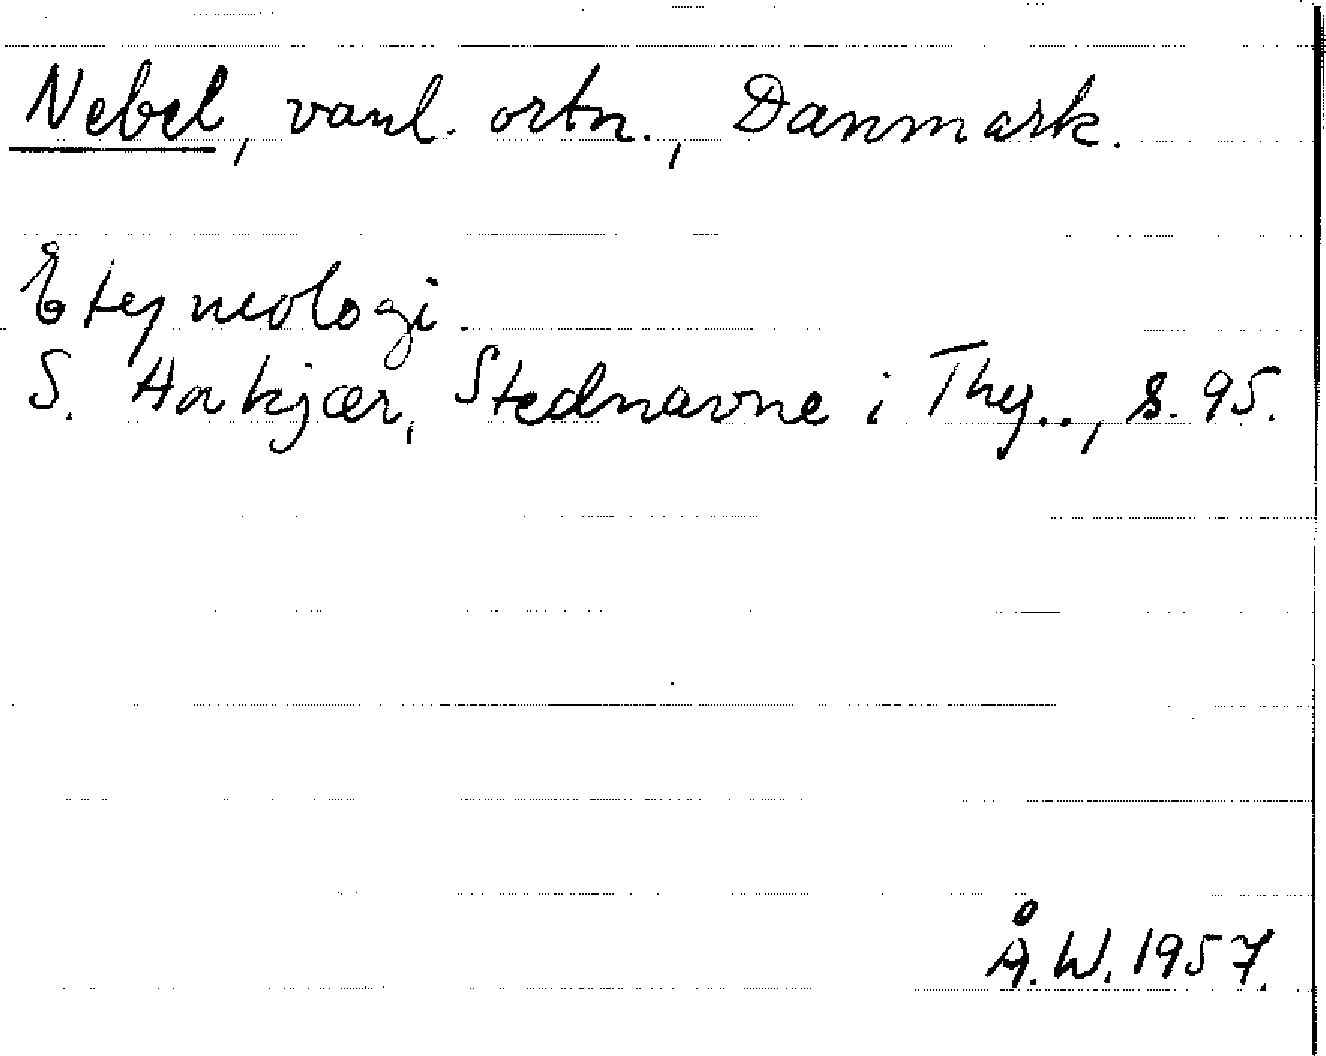 Nebel, vanl. ortn., Danmark.
Etymologi.
S. Hakjær, Stednavne i Thy.., s. 95.
Å.W. 1957.